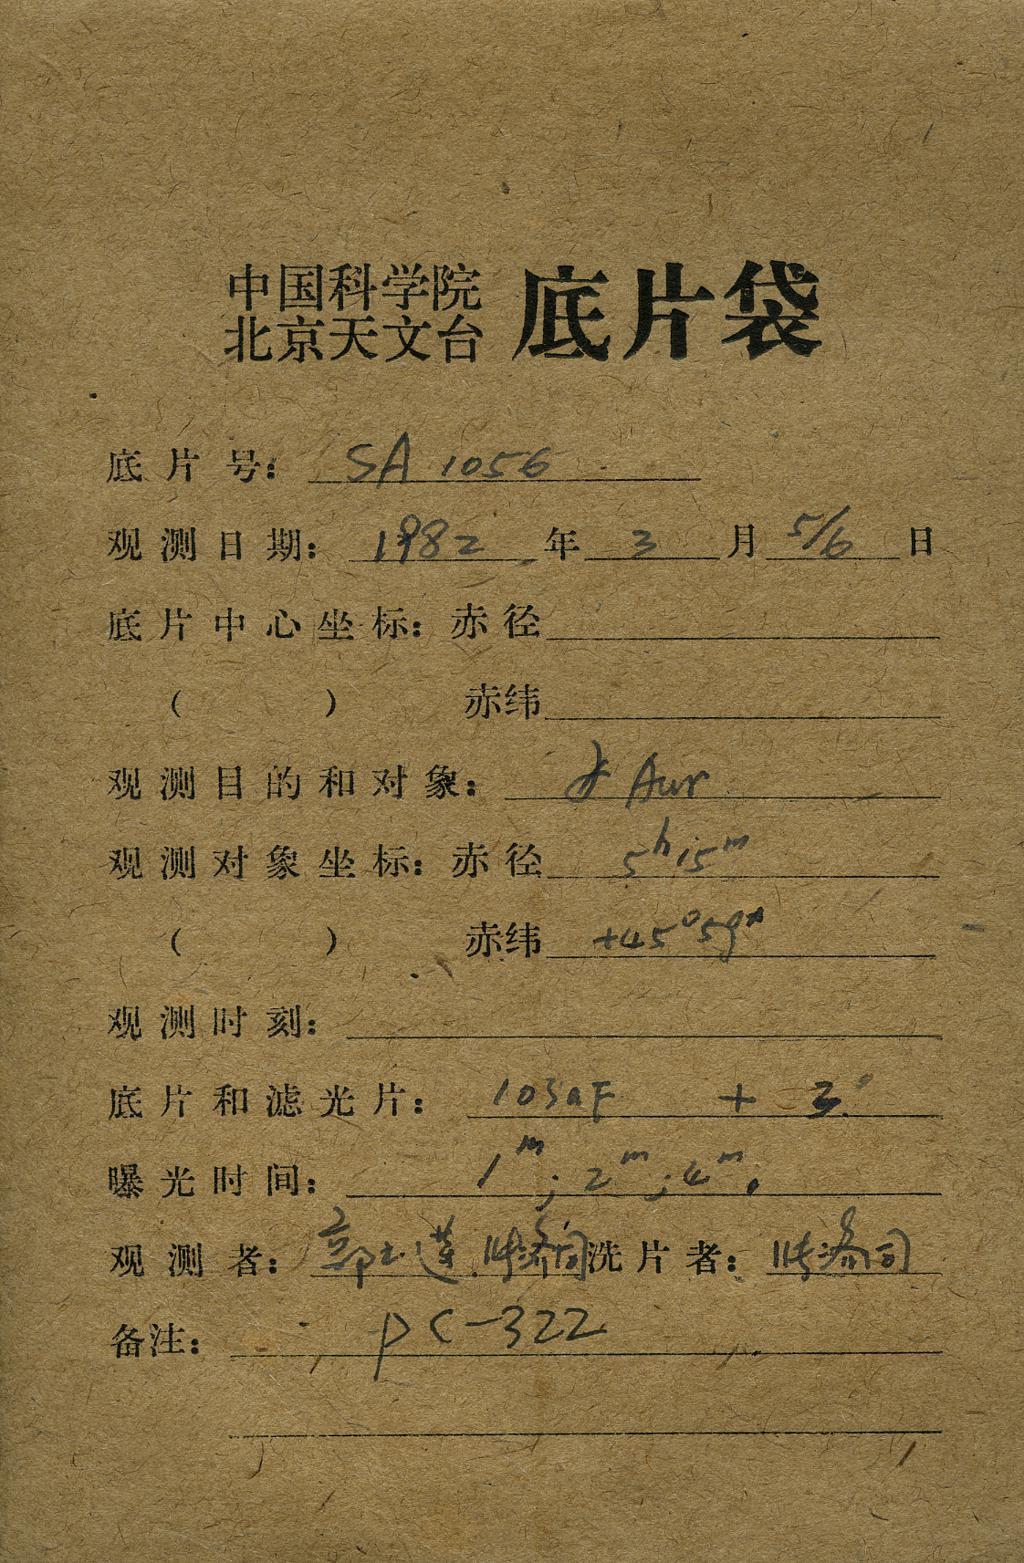 中国科学院
北京天文台 底片袋
底片号： SA 1056
观测日期： 1982 年 3 月 5/6 日
底片中心坐标：赤径
（ ） 赤纬
观测目的和对象： α Aur
观测对象坐标：赤径 5h15m
（ ） 赤纬 +45°59
观测时刻：
底片和滤光片： 103aF + 3°
曝光时间： 1m; 2m; 4m.
观测者： 洗片者：
备注： PC-322